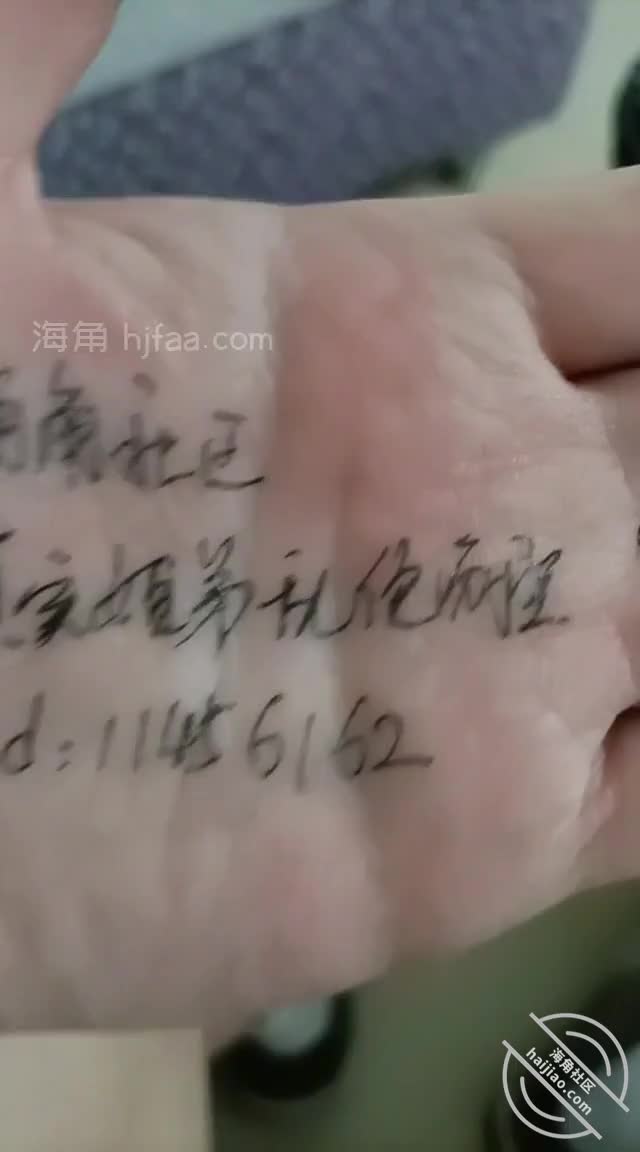 海角 hjfaa.com
角社区
实姐弟乱伦历程
d:11456162
海角社区
haijiao.com